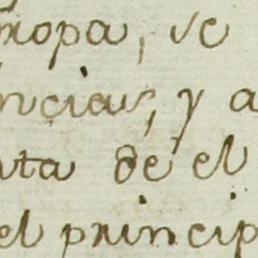 mopa, se
ncias, y a
uta de el
el princip